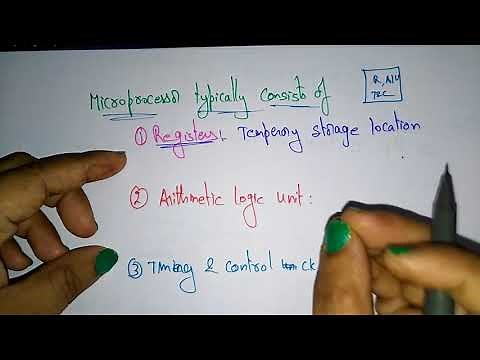 Microprocessor typically consists of
R, ALU
T&C
① Registers: Temperory storage location
② Arithmetic logic unit:
③ Timing & control ck